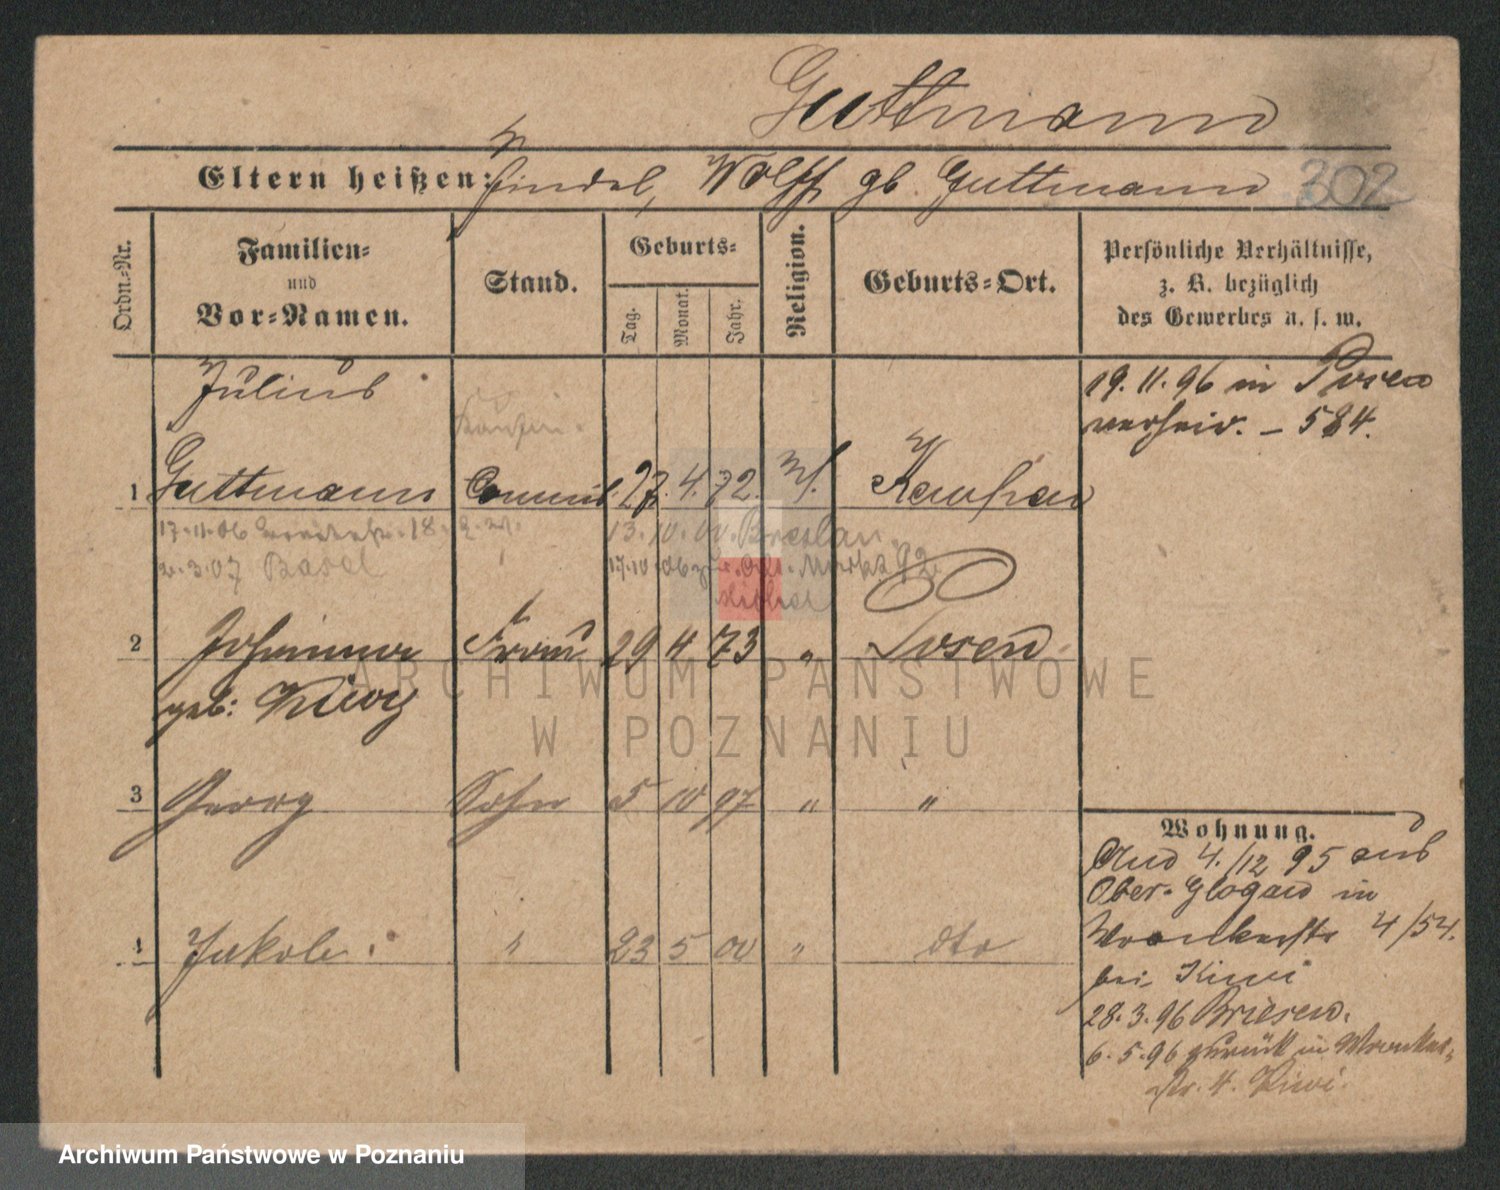 Guttmann
Eltern heißen: Findel, Wolff gb. Guttmann 302
Ordn.-Nr.
Familien-
und
Vor-Namen.
Stand.
Geburts-
Tag.
Monat.
Jahr.
Religion.
Geburts-Ort.
Persönliche Verhältnisse,
z. B. bezüglich
des Gewerbes u. s. w.
Julius
19. 11. 96 in Posen
verheir. – 584.
1 Guttmann Commis 27. 4. 72. M. Kempen
17.11.06 18. 13. 10. 00. Breslau
2.3.07 Basel 17.10.06 zur. Markt 92
2 Johanna Frau 29 4 73 " Posen
geb: Kiwy
ARCHIWUM PAŃSTWOWE
W POZNANIU
3 Georg Sohn 5 10 97 " "
Wohnung.
And 4./12 95 aus
Ober-Glogau in
4 Jakob. " 23 5 00 " dto
Wronkerstr 4/54.
bei Kiwi
28. 3. 96 Briesen.
6. 5. 96 zurück in Wronker-
str. 4. Kiwi.
Archiwum Państwowe w Poznaniu